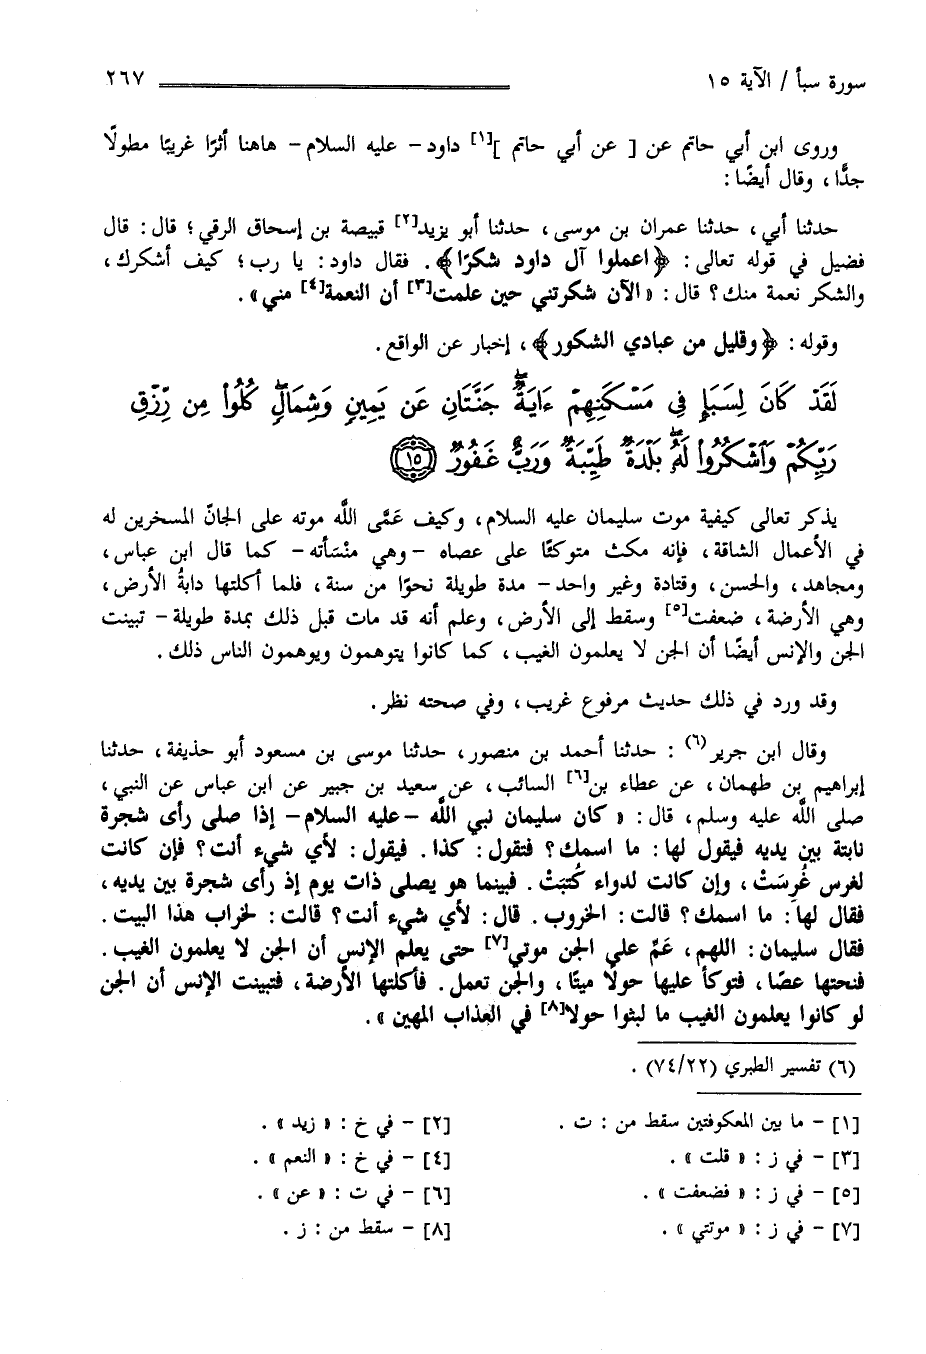 سورة سبأ / الآية ١٥ ٢٦٧
وروى ابن أبي حاتم عن [ عن أبي حاتم ][١] داود - عليه السلام - هاهنا أثرًا غريبًا مطولًا
جدًّا ، وقال أيضًا :
حدثنا أبي ، حدثنا عمران بن موسى ، حدثنا أبو يزيد[٢] قبيصة بن إسحاق الرقي ؛ قال : قال
فضيل في قوله تعالى : ﴿اعملوا آل داود شكرًا﴾ . فقال داود : يا رب ؛ كيف أشكرك ،
والشكر نعمة منك ؟ قال : « الآن شكرتني حين علمت[٣] أن النعمة[٤] مني » .
وقوله : ﴿وقليل من عبادي الشكور﴾ ، إخبار عن الواقع .
لَقَدْ كَانَ لِسَبَإٍ فِى مَسْكَنِهِمْ ءَايَةٌ ۖ جَنَّتَانِ عَن يَمِينٍ وَشِمَالٍ ۖ كُلُوا۟ مِن رِّزْقِ
رَبِّكُمْ وَٱشْكُرُوا۟ لَهُۥ ۚ بَلْدَةٌ طَيِّبَةٌ وَرَبٌّ غَفُورٌ ١٥
يذكر تعالى كيفية موت سليمان عليه السلام ، وكيف عَمَّى اللَّه موته على الجانّ المسخرين له
في الأعمال الشاقة ، فإنه مكث متوكئًا على عصاه - وهي منْسَأته - كما قال ابن عباس ،
ومجاهد ، والحسن ، وقتادة وغير واحد - مدة طويلة نحوًا من سنة ، فلما أكلتها دابةُ الأرض ،
وهي الأرضة ، ضعفت[٥] وسقط إلى الأرض ، وعلم أنه قد مات قبل ذلك بمدة طويلة - تبينت
الجن والإنس أيضًا أن الجن لا يعلمون الغيب ، كما كانوا يتوهمون ويوهمون الناس ذلك .
وقد ورد في ذلك حديث مرفوع غريب ، وفي صحته نظر .
وقال ابن جرير(٦) : حدثنا أحمد بن منصور ، حدثنا موسى بن مسعود أبو حذيفة ، حدثنا
إبراهيم بن طهمان ، عن عطاء بن[٦] السائب ، عن سعيد بن جبير عن ابن عباس عن النبي ،
صلى اللَّه عليه وسلم ، قال : « كان سليمان نبي اللَّه - عليه السلام - إذا صلى رأى شجرة
نابتة بين يديه فيقول لها : ما اسمك ؟ فتقول : كذا . فيقول : لأي شيء أنت ؟ فإن كانت
لغرس غُرِسَتْ ، وإن كانت لدواء كُتبَتْ . فبينما هو يصلي ذات يوم إذ رأى شجرة بين يديه ،
فقال لها : ما اسمك ؟ قالت : الخروب . قال : لأي شيء أنت ؟ قالت : لخراب هذا البيت .
فقال سليمان : اللهم ، عَمِّ على الجن موتي[٧] حتى يعلم الإنس أن الجن لا يعلمون الغيب .
فنحتها عصًا ، فتوكأ عليها حولًا ميتًا ، والجن تعمل . فأكلتها الأرضة ، فتبينت الإنس أن الجن
لو كانوا يعلمون الغيب ما لبثوا حولا[٨] في العذاب المهين » .
(٦) تفسير الطبري (٧٤/٢٢) .
[١] - ما بين المعكوفتين سقط من : ت . [٢] - في خ : « زيد » .
[٣] - في ز : « قلت » . [٤] - في خ : « النعم » .
[٥] - في ز : « فضعفت » . [٦] - في ت : « عن » .
[٧] - في ز : « موتتي » . [٨] - سقط من : ز .